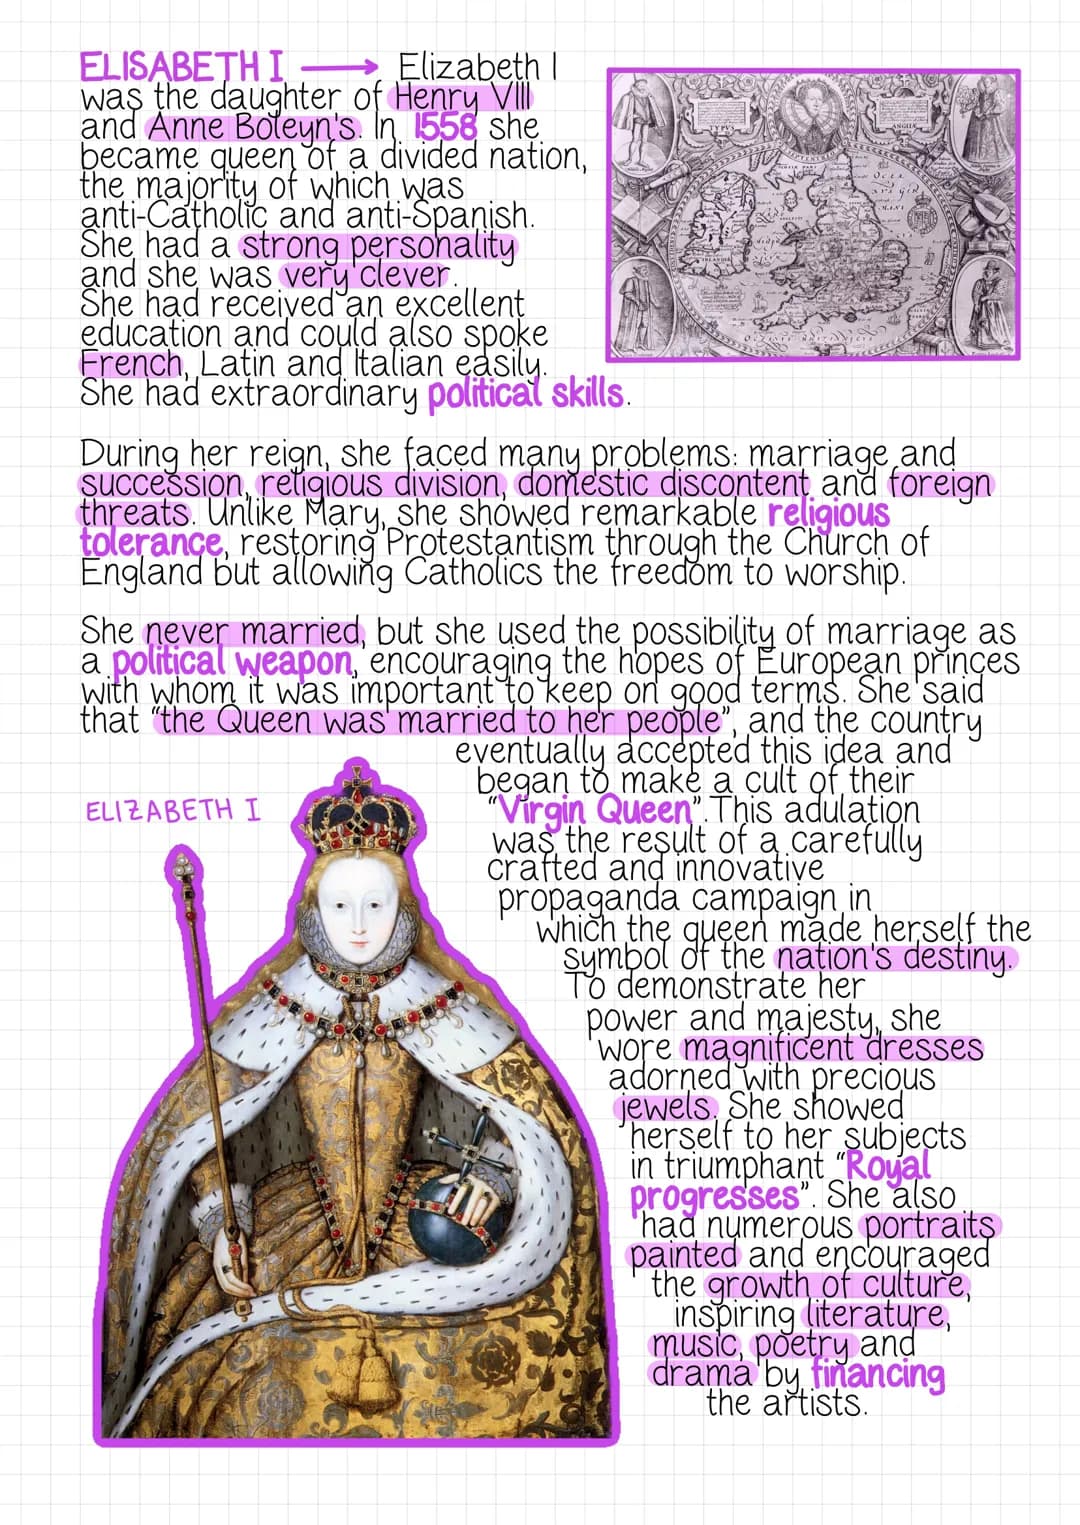 ELISABETH I → Elizabeth I
was the daughter of Henry VIII
and Anne Boleyn's. In 1558 she
became queen of a divided nation,
the majority of which was
anti-Catholic and anti-Spanish.
She had a strong personality
and she was very clever.
She had received an excellent
education and could also spoke
French, Latin and Italian easily.
She had extraordinary political skills.
During her reign, she faced many problems: marriage and
succession, religious division, domestic discontent and foreign
threats. Unlike Mary, she showed remarkable religious
tolerance, restoring Protestantism through the Church of
England but allowing Catholics the freedom to worship.
She never married, but she used the possibility of marriage as
a political weapon, encouraging the hopes of European princes
with whom it was important to keep on good terms. She said
that “the Queen was married to her people”, and the country
eventually accepted this idea and
began to make a cult of their
“Virgin Queen”. This adulation
was the result of a carefully
crafted and innovative
propaganda campaign in
which the queen made herself the
symbol of the nation's destiny.
To demonstrate her
power and majesty, she
wore magnificent dresses
adorned with precious
jewels. She showed
herself to her subjects
in triumphant “Royal
progresses”. She also
had numerous portraits
painted and encouraged
the growth of culture,
inspiring literature,
music, poetry and
drama by financing
the artists.
ELIZABETH I